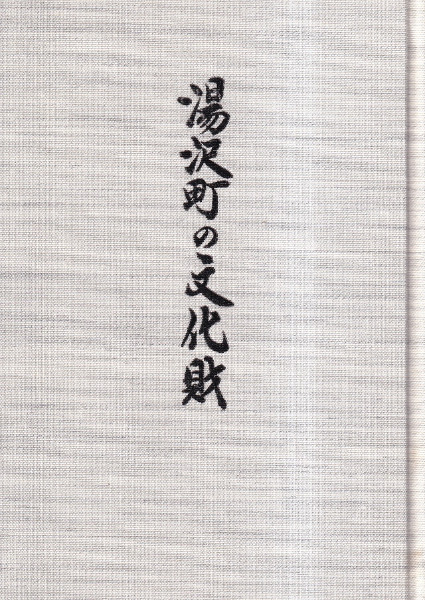 湯沢町の文化財